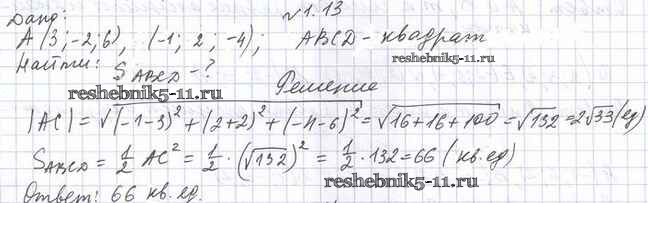 Дано: №1.13
A (3; -2; 6), (-1; 2; -4); ABCD - квадрат
Найти: S ABCD - ?
reshebnik5-11.ru
reshebnik5-11.ru
Решение
|AC| = √((-1-3)² + (2+2)² + (-4-6)²) = √(16+16+100) = √132 = 2√33 (ед)
S ABCD = 1/2 AC² = 1/2 · (√132)² = 1/2 · 132 = 66 (кв. ед)
reshebnik5-11.ru
Ответ: 66 кв. ед.